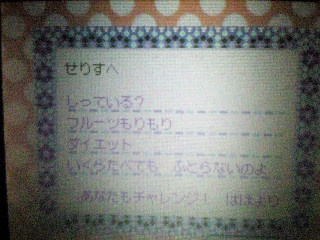 せりすへ
しっている?
フルーツもりもり
ダイエット
いくらたべても ふとらないのよ
あなたもチャレンジ! ははより